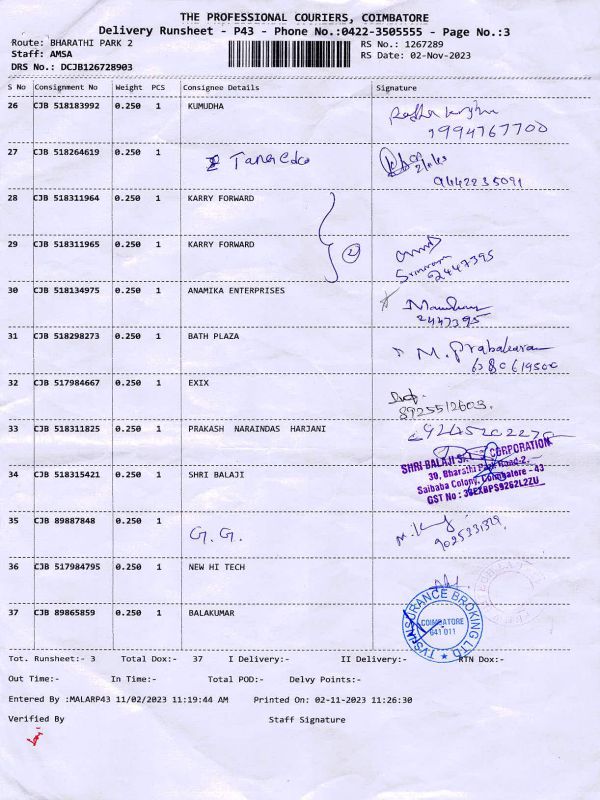 THE PROFESSIONAL COURIERS, COIMBATORE
Delivery Runsheet - P43 - Phone No.:0422-3505555 - Page No.:3
Route: BHARATHI PARK 2 RS No.: 1267289
Staff: AMSA RS Date: 02-Nov-2023
DRS No.: DCJB126728903
S No Consignment No Weight PCS Consignee Details Signature
26 CJB 518183992 0.250 1 KUMUDHA
9994767700
27 CJB 518264619 0.250 1
9442235091
28 CJB 518311964 0.250 1 KARRY FORWARD
29 CJB 518311965 0.250 1 KARRY FORWARD
2
2447395
30 CJB 518134975 0.250 1 ANAMIKA ENTERPRISES
2447395
31 CJB 518298273 0.250 1 BATH PLAZA
M. Prabakaran
6380619500
32 CJB 517984667 0.250 1 EXIX
8925512603.
33 CJB 518311825 0.250 1 PRAKASH NARAINDAS HARJANI
SHRI BALAJI CORPORATION
34 CJB 518315421 0.250 1 SHRI BALAJI
30, Bharathi Park Road-2.
Saibaba Colony, Coimbatore - 43
GST No :
35 CJB 89887848 0.250 1 G.G.
36 CJB 517984795 0.250 1 NEW HI TECH
37 CJB 89865859 0.250 1 BALAKUMAR
INSURANCE BROKING LTD
COIMBATORE
641 011
Tot. Runsheet:- 3 Total Dox:- 37 I Delivery:- II Delivery:- RTN Dox:-
Out Time:- In Time:- Total POD:- Delvy Points:-
Entered By :MALARP43 11/02/2023 11:19:44 AM Printed On: 02-11-2023 11:26:30
Verified By Staff Signature